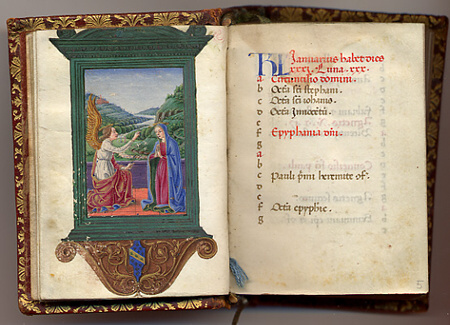 KL Januarius habet dies
xxxi. Luna. xxx.
A Circuncisio domini.
b Octa sci stephani.
c Octa s iohanis.
d Octa innocetu.
e
f Epyphania dni.
g
A
b
c
d Pauli pmi heremite of.
e
f Octa epyphie.
g
5